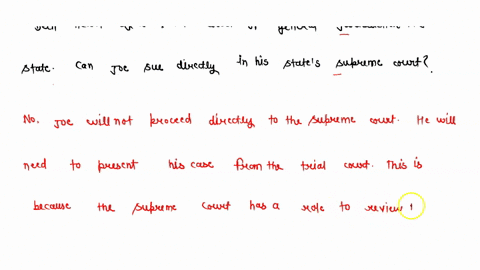 of general
state. Can Joe sue directly in his state's supreme court?
No. Joe will not proceed directly to the supreme court. He will
need to present his case from the trial court. This is
because the supreme court has a role to review